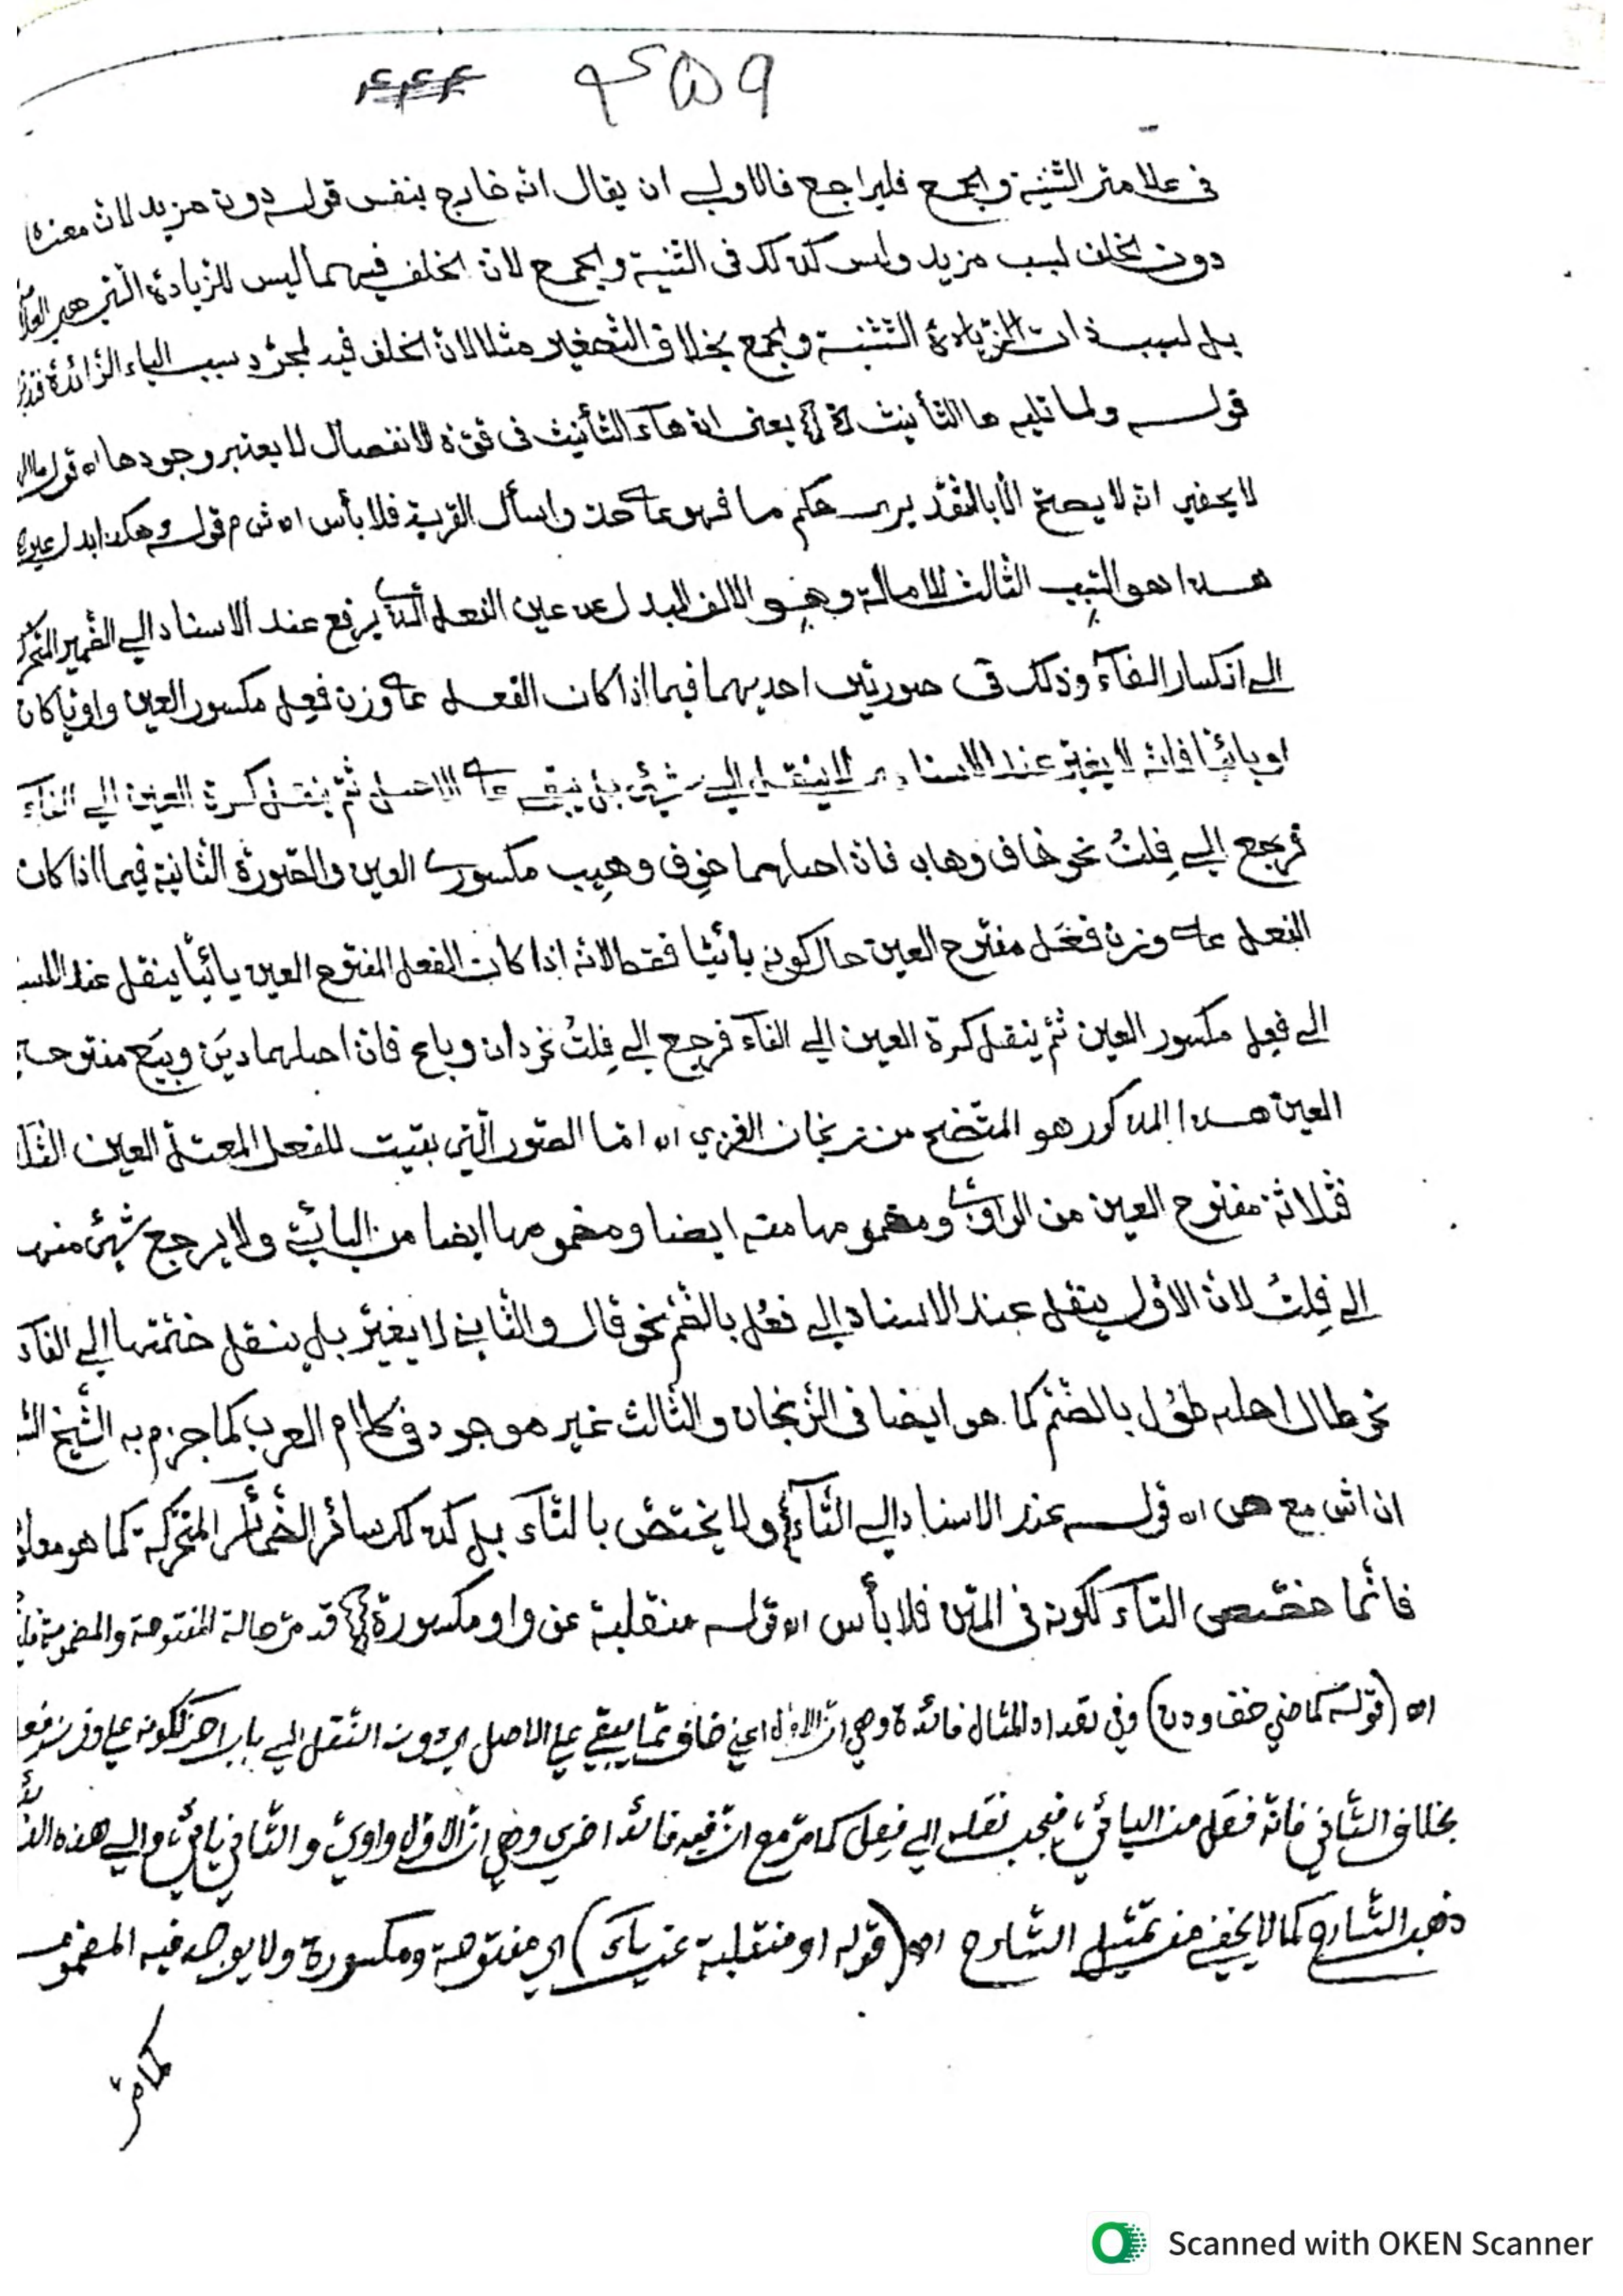 ٤٥٩ ٤٤٤
فى علامتى التثنية والجمع فليراجع فالاولى ان يقال انه خارج بنفس قوله دون مزيد لان معناه
دون الخلف لسبب مزيد وليس كذلك فى التثنية والجمع لان الخلف فيهما ليس للزيادة التى هى
بل لسبب ذات الزيادة التثنية والجمع بخلاف التصغير مثلا لان الخلف فيه لمجرد سبب الياء الزائدة
قوله ولما تليه ها التأنيث يعنى ان هاء التأنيث فى قوة الانفصال لا يعتبر وجودها اه قوله
لا يخفى انه لا يصح الا بالتقدير حكم ما فهو على حذ واسأل القرية فلا بأس اه ش م قوله وهكذا بدل عين
هذا هو السبب الثالث للامالة وهو الالف البدل عن عين الفعل الذى يرفع عند الاسناد الى الضمير
الى انكسار الفآء وذلك فى صورتين احديهما فيما اذا كان الفعل على وزن فعِل مكسور العين واويا كان
او يائيا فانه لا يغير عند الاسناد لا ينتقل الى شئ بل يبقى على الاصل ثم ينقل كسرة العين الى الفآء
فرجع الى فِلتُ نحو خاف وهاب فان اصلهما خوِف وهيِب مكسورى العين والصورة الثانية فيما اذا كان
الفعل على وزن فعَل مفتوح العين حال كونه يائيا فقط لانه اذا كان الفعل المفتوح العين يائيا ينقل عند
الى فعِل مكسور العين ثم ينقل كسرة العين الى الفآء فرجع الى فِلتُ نحو دان وباع فان اصلهما ديَن وبيَع مفتوحى
العين هذا المذكور هو المتضح من زنجان الغزي اه اما الصور التى بقيت للفعل المعتل العين
فثلاثة مفتوح العين من الواوى ومضمومها منه ايضا ومضمومها ايضا من اليائى ولا يرجع شئ منها
الى فِلتُ لان الاول ينقل عند الاسناد الى فعُل بالضم نحو قال والثانى لا يغير بل ينقل ضمتها الى الفآء
نحو طال اصله طوُل بالضم كما هو ايضا فى الزنجان والثالث غير موجود فى كلام العرب كما جزم به الشيخ
ان اش مع ص اه قوله عند الاسناد الى التآء ولا يختص بالتآء بل كذلك سائر الضمائر المتحركة كما هو معلوم
فانما خصص التآء لكونه فى المتن فلا بأس اه قوله منقلبة عن واو مكسورة قد مر حالة المفتوحة والمضمومة
اه (قوله كماضي خف ودن) وفي تعداد المثال فائدة وهي ان الاول اعني خاف مما يبقى على الاصل دون النقل الى باب اخر لكونه على وزن
بخلاف الثاني فانه فعَل من اليائي فيجب نقله الى فعِل كما مر مع ان فيه فائدة اخرى وهي ان الاول واوي والثاني يائي والى هذه
ذهب الشارح كما لا يخفى من تمثيل الشارح اه (قوله او منقلبة عن ياء) اي مفتوحة ومكسورة ولا يوجد فيه المضموم
كما مر
Scanned with OKEN Scanner